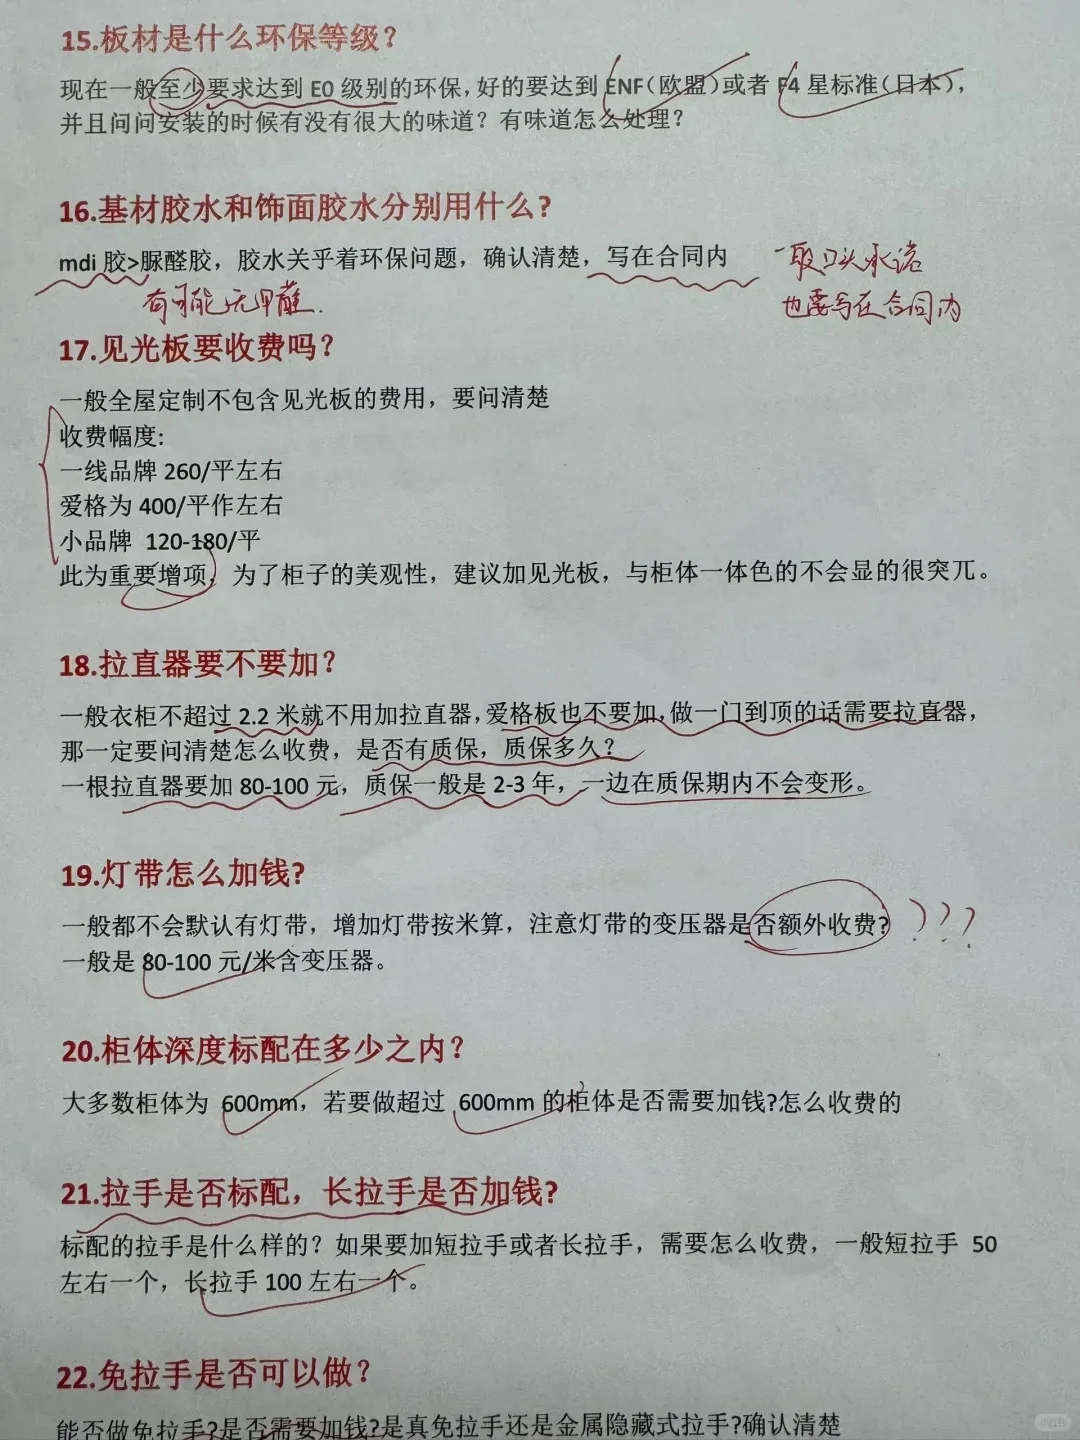 15.板材是什么环保等级？
现在一般至少要求达到 E0 级别的环保，好的要达到 ENF（欧盟）或者 F4 星标准（日本），
并且问问安装的时候有没有很大的味道？有味道怎么处理？
16.基材胶水和饰面胶水分别用什么?
mdi 胶>脲醛胶，胶水关乎着环保问题，确认清楚，写在合同内
一取口头承诺
有可能无甲醛.
也要写在合同内
17.见光板要收费吗？
一般全屋定制不包含见光板的费用，要问清楚
收费幅度:
一线品牌 260/平左右
爱格为 400/平作左右
小品牌 120-180/平
此为重要增项，为了柜子的美观性，建议加见光板，与柜体一体色的不会显的很突兀。
18.拉直器要不要加？
一般衣柜不超过 2.2 米就不用加拉直器，爱格板也不要加，做一门到顶的话需要拉直器，
那一定要问清楚怎么收费，是否有质保，质保多久？
一根拉直器要加 80-100 元，质保一般是 2-3 年，一边在质保期内不会变形。
19.灯带怎么加钱?
一般都不会默认有灯带，增加灯带按米算，注意灯带的变压器是否额外收费? ???
一般是 80-100 元/米含变压器。
20.柜体深度标配在多少之内？
大多数柜体为 600mm，若要做超过 600mm 的柜体是否需要加钱?怎么收费的
21.拉手是否标配，长拉手是否加钱?
标配的拉手是什么样的？如果要加短拉手或者长拉手，需要怎么收费，一般短拉手 50
左右一个，长拉手 100 左右一个。
22.免拉手是否可以做？
能否做免拉手?是否需要加钱?是真免拉手还是金属隐藏式拉手?确认清楚
小红书